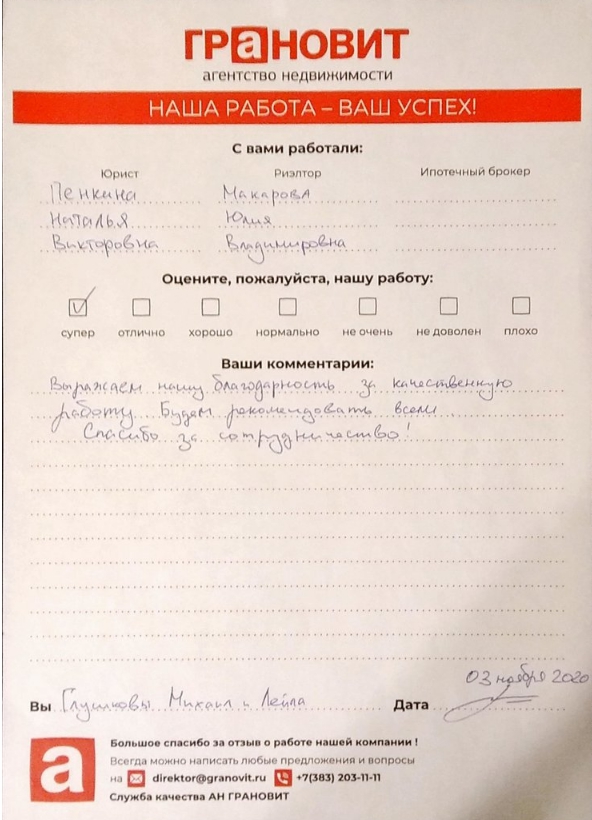 ГРаНОВИТ
агентство недвижимости
НАША РАБОТА – ВАШ УСПЕХ!
С вами работали:
Юрист Риэлтор Ипотечный брокер
Пенкина Макарова
Наталья Юлия
Викторовна Владимировна
Оцените, пожалуйста, нашу работу:
супер отлично хорошо нормально не очень не доволен плохо
Ваши комментарии:
Выражаем нашу благодарность за качественную
работу. Будем рекомендовать всем.
Спасибо за сотрудничество!
03 ноября 2020
Вы Глушковы Михаил и Лейла Дата
а
Большое спасибо за отзыв о работе нашей компании !
Всегда можно написать любые предложения и вопросы
на direktor@granovit.ru +7(383) 203-11-11
Служба качества АН ГРАНОВИТ